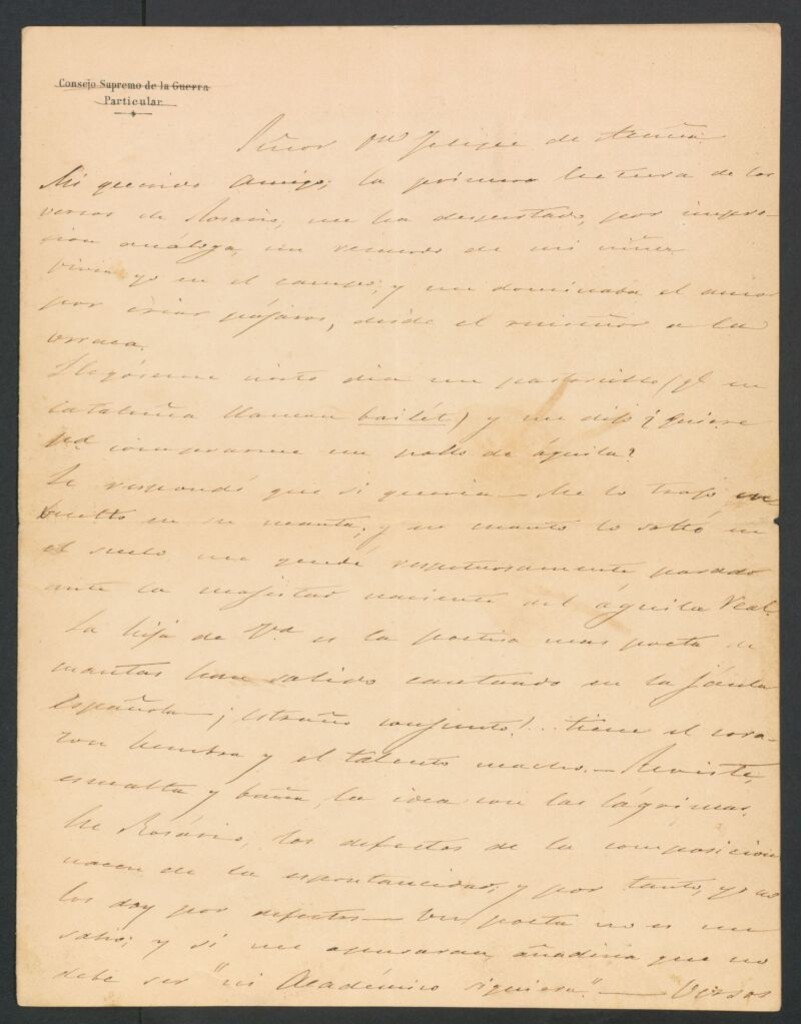 Consejo Supremo de la Guerra
Particular
Señor Dn Felipe de Acuña
Mi querido Amigo; la primera lectura de los
versos de Rosario, me ha despertado, por impre-
sion análoga, un recuerdo de mi niñez.
Vivia yo en el campo, y me dominaba el amor
por criar pájaros, desde el ruiseñor a la
urraca.
Llegóseme cierto dia un pastorcillo (qe en
Cataluña llaman bailét) y me dijo ¿Quiere
Vd comprarme un pollo de águila?
Le respondé que si queria — Me lo trajo en
vuelto en su manta, y en cuanto lo soltó en
el suelo me quedé respetuosamente parado
ante la majestad naciente del águila Real.
La hija de Vd es la poetisa mas poeta de
cuantas han salido cantando en la jáula
Española ¡estraño conjunto!.. tiene el cora-
zon hembra y el talento macho. — Reviste,
esmalta y baña, la idea con las lágrimas.
En Rosário, los defectos de la composicion
nacen de la espontaneidad, y por tanto, yo no
los doy por defectos — Un poeta no es un
sabio; y si me apuraran, añadiria que no
debe ser "ni Académico siquiera". — Versos